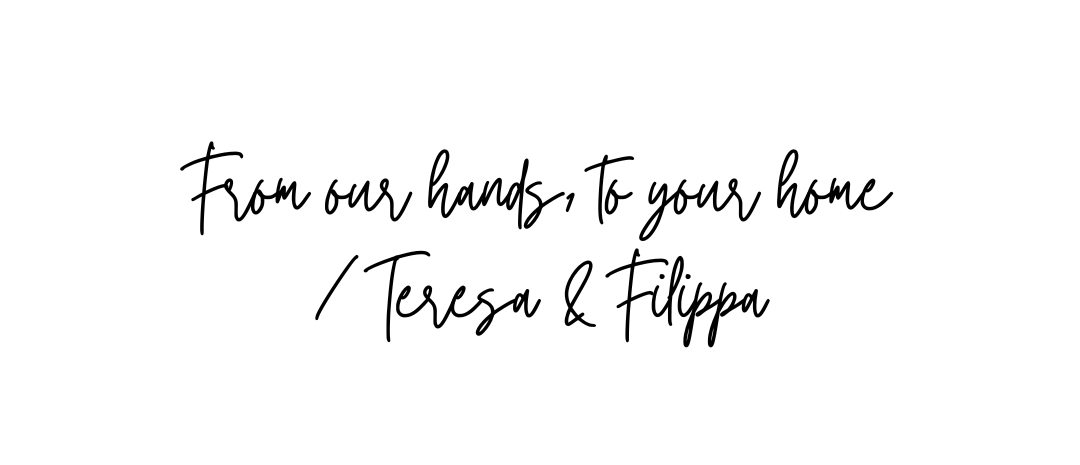 From our hands, to your home
/ Teresa & Filippa